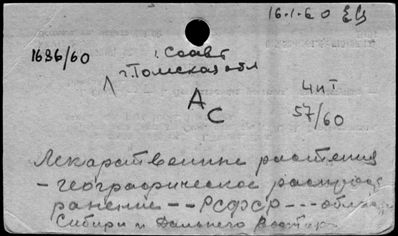 16.1.60 ЕЦ
1636/60
г. Соавт
г. Томская обл
А
С
4 ит
57/60
Лекарственные растения
- географическое распрос
ранение -- РСФСР ---
Сибири и Дальнего Восток